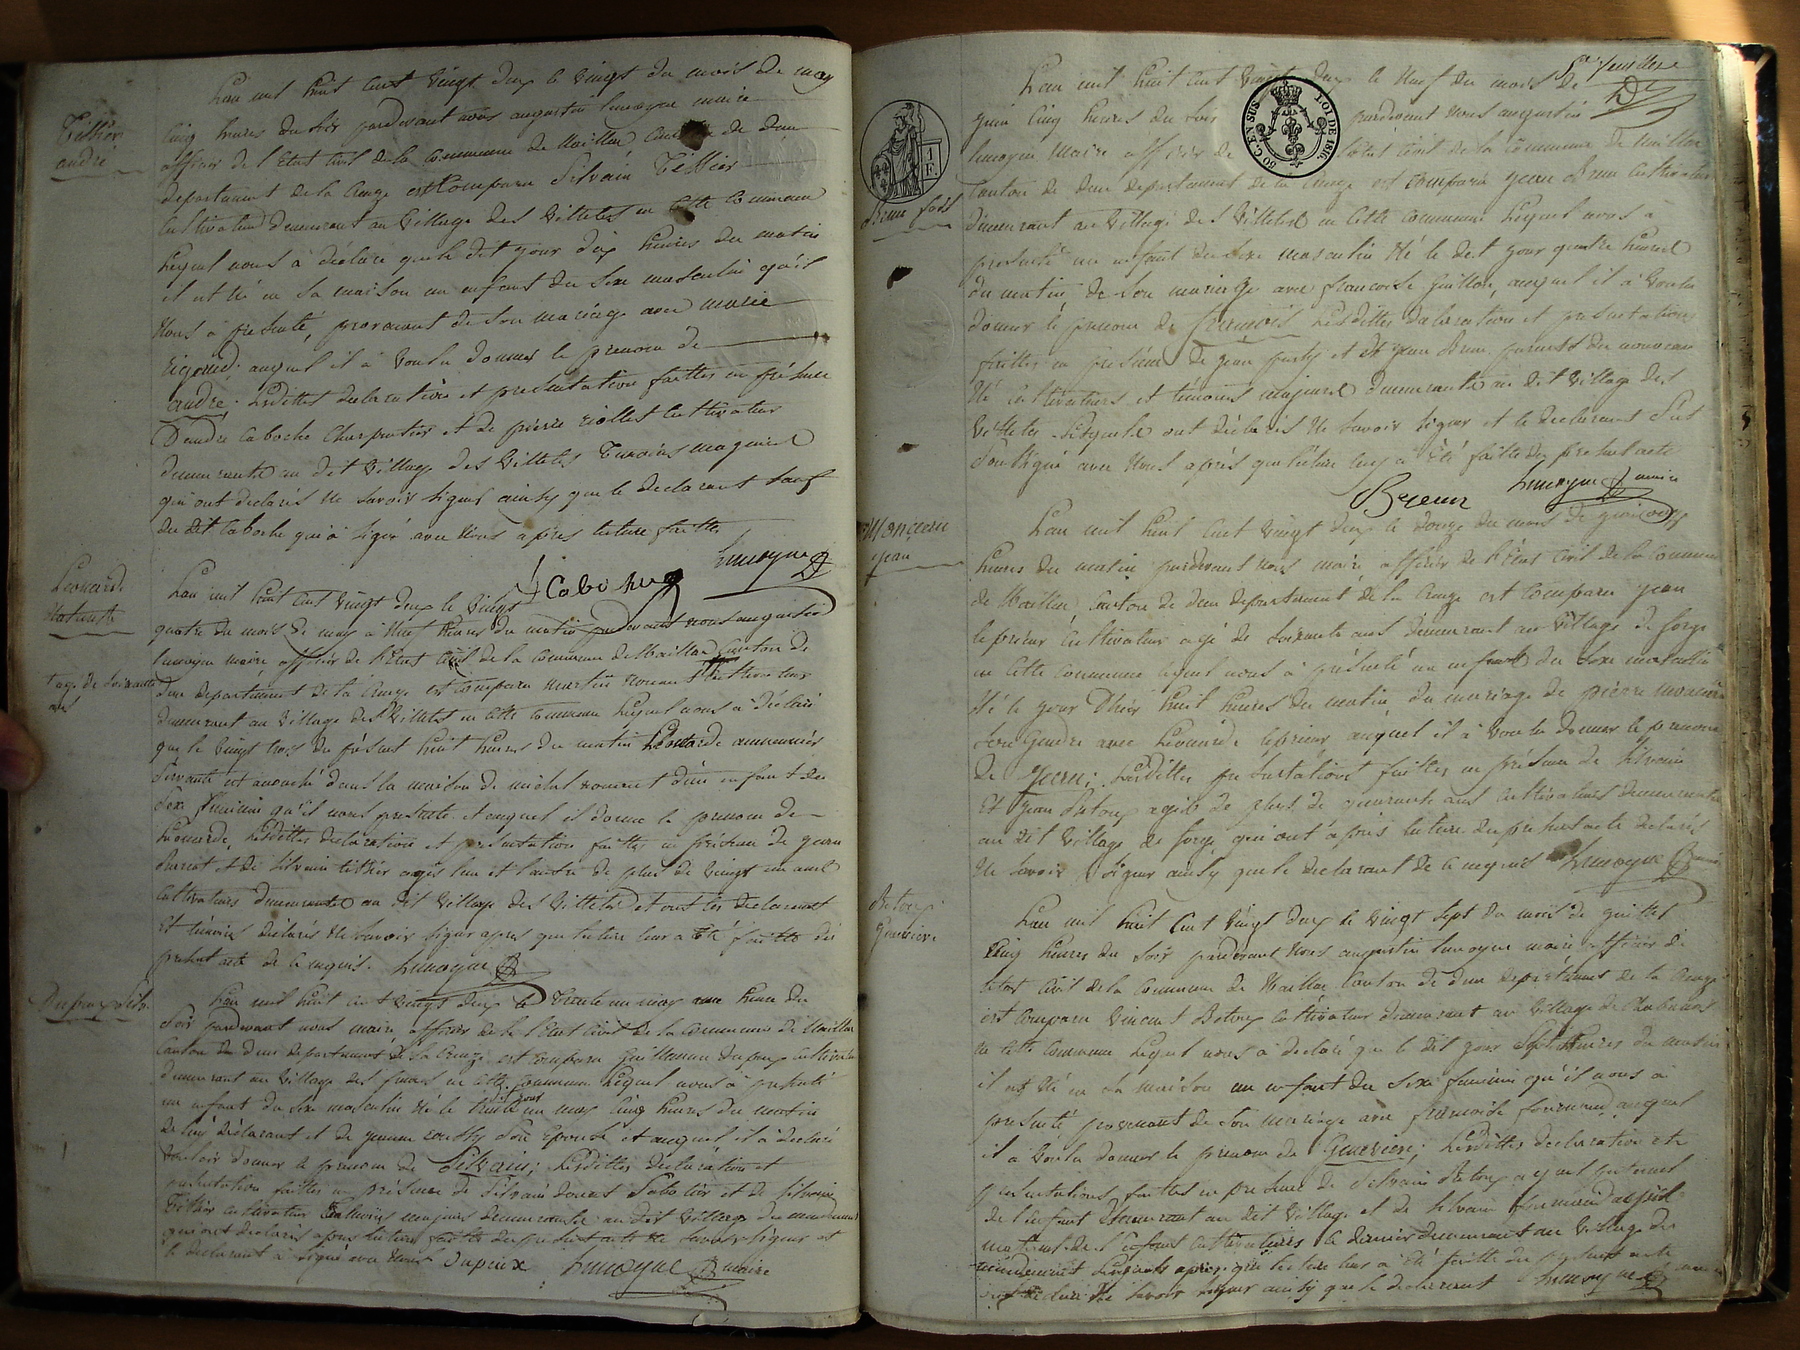 Tithier
andré
L'an mil huit cent vingt deux le vingt du mois de may
cinq heures du soir pardevant nous augustin lemoyne maire
officier de l'Etat Civil de la Commune de Maillat Canton de dun
departement de la Creuze est Comparu Silvain Tithier
Cultivateur demeurant au Village des Villetes en cette Commune
lequel nous à déclaré que le dit jour dix heures du matin
il est né en sa maison un enfant du sexe masculin qu'il
nous à présenté, provenant de son mariage avec marie
auquel il à voulu donner le prenom de
andré. Lesdittes declaration et presentation faittes en présence
D'andré caboche Charpentier et de pierre riollet Cultivateur
demeurants au dit Village des Villetes Temoins majeurs
qui ont declarés ne savoir signer ainsy que le declarant sauf
du dit Caboche qui à signé avec nous apres lecture faitte
Caboche
Lemoyne
Leonarde
Naturelle
L'an mil huit cent vingt deux le vingt
quatre du mois de may à neuf heures du matin pardevant nous augustin
lemoyne maire officier de l'Etat Civil de la Commune de Maillat Canton de
agé de soixante
ans
dun departement de la Creuze est Comparu martin Cultivateur
demeurant au Village des Villetes en cette Commune lequel nous à déclaré
que le vingt trois du présent huit heures du matin Léonarde
servante est accouché dans la maison de michel d'un enfant du
sexe feminin qu'il nous presente et auquel il donne le prenom de
Leonarde, Lesdittes declaration et presentation faittes en présence de jean
et de silvain tithier agés l'un et l'autre de plus de vingt un ans
Cultivateurs demeurants au dit Village des Villetes et ont les declarant
et témoins déclarés ne savoir signer apres que lecture leur a été faitte du
présent acte de ce requis. Lemoyne
Dupeux Silv.
L'an mil huit cent vingt deux le trente un may une heure du
soir pardevant nous maire, officier de l'Etat Civil de la Commune de Maillat
Canton de dun departement de la Creuze est Comparu Guillaume dupeux cultivateur
demeurant au Village des en cette Commune lequel nous à presenté
un enfant du sexe masculin né le trente un may cinq heures du matin
de luy déclarant et de son Epouse et auquel il à declaré
vouloir donner le prenom de Silvain; Lesdittes déclaration et
presentation faittes en présence de Silvain Sabotier et de silvain
Tithier cultivateur témoins majeurs demeurants au dit Village
qui ont declarés apres lecture faitte du présent acte ne savoir signer et
le declarant à signé avec nous Dupeux Lemoyne maire
Sème feuillet
60 C. EN SUS
LOI DE 1816
1 F.
Brun fois
L'an mil huit cent vingt deux le neuf du mois de
juin cinq heures du soir pardevant nous augustin
lemoyne maire officier de l'état civil de la Commune de Maillat
Canton de dun departement de la Creuze est Comparu jean Brun cultivateur
demeurant au Village des Villetes en cette Commune lequel nous à
presenté un enfant du sexe masculin né le dit jour quatre heures
du matin, de son mariage avec francoise Guillon, auquel il à voulu
donner le prenom de francois Lesdittes declaration et presentation
faittes en présence de jean et de jean Brun parents du nouveau
né cultivateurs et témoins majeurs demeurants au dit Village des
Villetes. Lesquels ont déclarés ne savoir signer et le declarant s'est
soussigné avec nous après que lecture luy a été faitte du présent acte
Lemoyne maire
Moniceau
jean
L'an mil huit cent vingt deux le douze du mois de juin onze
heures du matin pardevant nous maire officier de l'Etat Civil de la Commune
de Maillat Canton de dun departement de la Creuze est Comparu jean
leprieur Cultivateur agé de soixante ans demeurant au Village de forge
en cette Commune lequel nous à présenté un enfant du sexe masculin
né le jour d'hier huit heures du matin, du mariage de pierre
son Gendre avec Leonarde leprieur auquel il à voulu donner le prenom
de jean; Lesdittes presentations faittes en présence de Silvain
et jean Betoux agés de plus de quarante ans Cultivateurs demeurants
au dit Village de forge, qui ont après lecture du présent acte declarés
ne savoir signer ainsy que le declarant de ce requis Lemoyne maire
Betoux
Genevieve
L'an mil huit cent vingt deux le vingt sept du mois de juillet
cinq heures du soir pardevant nous augustin lemoyne maire officier de
l'etat Civil de la Commune de Maillat Canton de dun departement de la Creuze
est Comparu vincent Betoux Cultivateur demeurant au Village de
en cette Commune lequel nous à declaré que le dit jour sept heures du matin
il est né en sa maison un enfant du sexe feminin qu'il nous à
presenté provenant de son mariage avec francoise auquel
il à voulu donner le prenom de Genevieve; Lesdittes declaration et
presentations faittes en presence de Silvain Betoux ayeul paternel
de l'enfant demeurant au dit Village et de silvain ayeul
maternel de l'enfant Cultivateurs le dernier demeurant au Village de
Lesquels apres que lecture leur à été faitte du présent acte
ont declaré ne savoir signer ainsy que le declarant Lemoyne